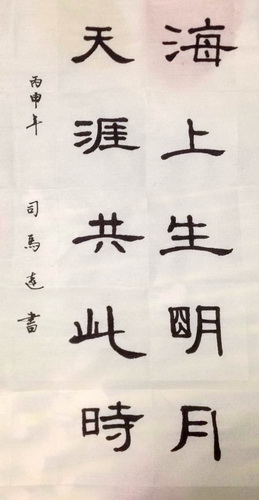 海上生明月
天涯共此時
丙申年 司馬遠書